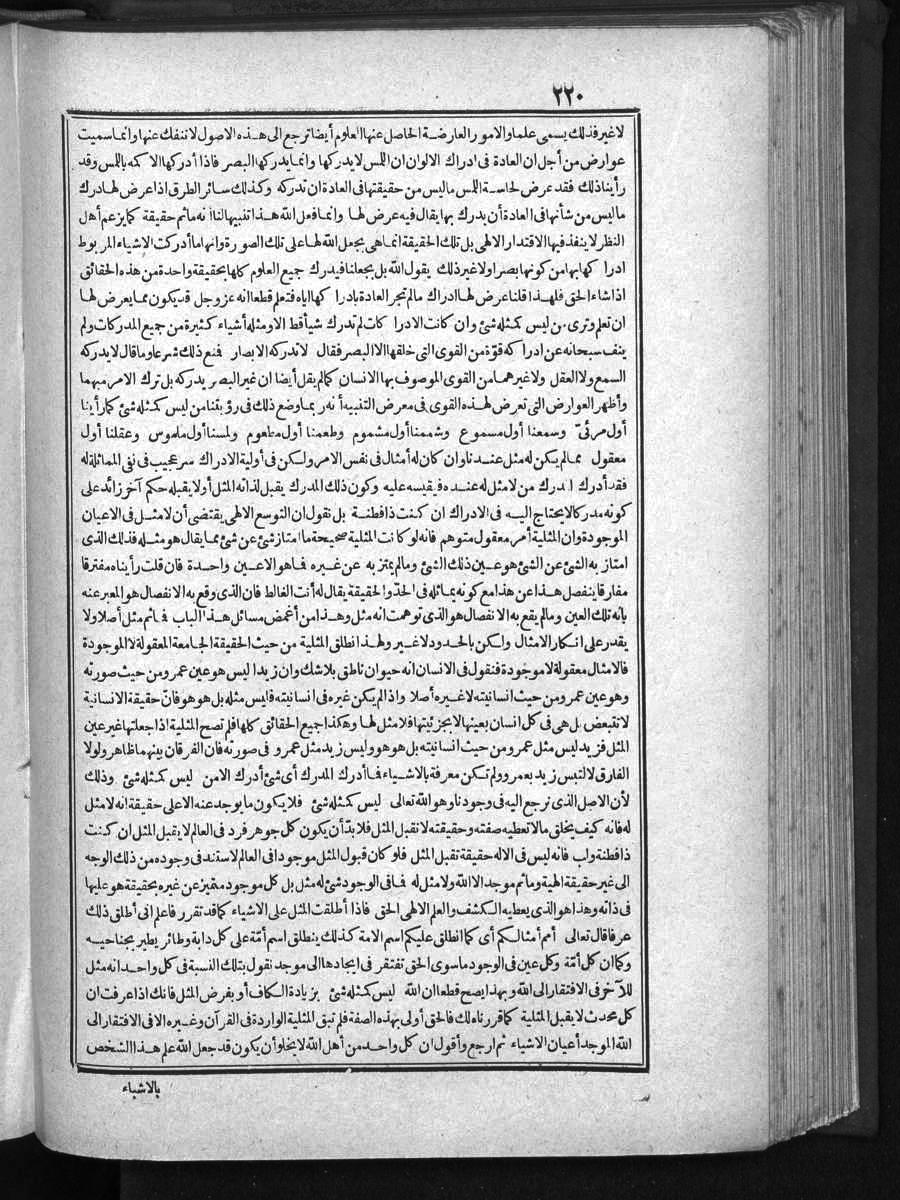 ٢٢٠
لا غير فذلك يسمى علما والامور العارضة الحاصل عنها العلوم أيضا ترجع الى هذه الاصول لا تنفك عنها وانما سميت
عوارض من أجل ان العادة فى ادراك الالوان ان اللمس لا يدركها وانما يدركها البصر فاذا أدركها الاكمه باللمس وقد
رأينا ذلك فقد عرض لحاسة اللمس ما ليس من حقيقتها فى العادة ان تدركه وكذلك سائر الطرق اذا عرض لها درك
ما ليس من شأنها فى العادة أن يدرك بها يقال فيه عرض لها وانما فعل الله هذا تنبيها لنا أنه ما ثم حقيقة كما يزعم أهل
النظر لا ينفذ فيها الاقتدار الالهى بل تلك الحقيقة انما هى بجعل الله لها على تلك الصورة وانها ما أدركت الاشياء المربوط
ادراكها بها من كونها بصرا ولا غير ذلك يقول الله بل بجعلنا فيدرك جميع العلوم كلها بحقيقة واحدة من هذه الحقائق
اذا شاء الحق فلهذا قلنا عرض لها ادراك ما لم تجر العادة بادراكها اياه فتعلم قطعا انه عز وجل قد يكون مما يعرض لها
ان تعلم وترى من ليس كمثله شئ وان كانت الادراكات لم تدرك شيأ قط الا ومثله أشياء كثيرة من جميع المدركات ولم
ينف سبحانه عن ادراكه قوة من القوى التى خلقها الا البصر فقال لا تدركه الابصار فمنع ذلك شرعا وما قال لا يدركه
السمع ولا العقل ولا غيرهما من القوى الموصوف بها الانسان كما لم يقل أيضا ان غير البصر يدركه بل ترك الامر مبهما
وأظهر العوارض التى تعرض لهذه القوى فى معرض التنبيه أنه ربما وضع ذلك فى رؤيتنا من ليس كمثله شئ كما رأينا
أول مرئىّ وسمعنا أول مسموع وشممنا أول مشموم وطعمنا أول مطعوم ولمسنا أول ملموس وعقلنا أول
معقول مما لم يكن له مثل عندنا وان كان له أمثال فى نفس الامر ولكن فى أولية الادراك سر عجيب فى نفى المماثلة له
فقد أدرك المدرك من لا مثل له عنده فيقيسه عليه وكون ذلك المدرك يقبل لذاته المثل أولا يقبله حكم آخر زائد على
كونه مدركا لا يحتاج اليه فى الادراك ان كنت ذا فطنة بل نقول ان التوسع الالهى يقتضى أن لا مثل فى الاعيان
الموجودة وان المثلية أمر معقول متوهم فانه لو كانت المثلية صحيحة ما امتاز شئ عن شئ مما يقال هو مثله فذلك الذى
امتاز به الشئ عن الشئ هو عين ذلك الشئ وما لم يمتز به عن غيره فما هو الا عين واحدة فان قلت رأيناه مفترقا
مفارقا ينفصل هذا عن هذا مع كونه يماثله فى الحدّ والحقيقة يقال له أنت الغالط فان الذى وقع به الانفصال هو المعبر عنه
بانه تلك العين وما لم يقع به الانفصال هو الذى توهمت انه مثل وهذا من أغمض مسائل هذا الباب فما ثم مثل أصلا ولا
يقدر على انكار الامثال ولكن بالحدود لا غير ولهذا نطلق المثلية من حيث الحقيقة الجامعة المعقولة لا الموجودة
فالامثال معقولة لا موجودة فنقول فى الانسان انه حيوان ناطق بلا شك وان زيدا ليس هو عين عمرو من حيث صورته
وهو عين عمرو من حيث انسانيته لا غيره أصلا واذا لم يكن غيره فى انسانيته فليس مثله بل هو هو فانّ حقيقة الانسانية
لا تتبعض بل هى فى كل انسان بعينها لا بجزئيتها فلا مثل لها وهكذا جميع الحقائق كلها فلم تصح المثلية اذا جعلتها غير عين
المثل فزيد ليس مثل عمرو من حيث انسانيته بل هو هو وليس زيد مثل عمرو فى صورته فان الفرقان بينهما ظاهر ولولا
الفارق لالتبس زيد بعمرو ولم تكن معرفة بالاشياء فما أدرك المدرك أى شئ أدرك الا من ليس كمثله شئ وذلك
لأن الاصل الذى نرجع اليه فى وجودنا وهو الله تعالى ليس كمثله شئ فلا يكون ما يوجد عنه الا على حقيقة انه لا مثل
له فانه كيف يخلق ما لا تعطيه صفته وحقيقته لا تقبل المثل فلا بدّ أن يكون كل جوهر فرد فى العالم لا يقبل المثل ان كنت
ذا فطنة ولب فانه ليس فى الاله حقيقة تقبل المثل فلو كان قبول المثل موجودا فى العالم لاستند فى وجوده من ذلك الوجه
الى غير حقيقة الهية وما ثم موجد الا الله ولا مثل له فما فى الوجود شئ له مثل بل كل موجود متميز عن غيره بحقيقة هو عليها
فى ذاته وهذا هو الذى يعطيه الكشف والعلم الالهى الحق فاذا أطلقت المثل على الاشياء كما قد تقرر فاعلم انى أطلق ذلك
عرفا قال تعالى أمم أمثالكم أى كما انطلق عليكم اسم الامة كذلك ينطلق اسم أمّة على كل دابة وطائر يطير بجناحيه
وكما ان كل أمّة وكل عين فى الوجود ما سوى الحق تفتقر فى ايجادها الى موجد نقول بتلك النسبة فى كل واحد انه مثل
للآخر فى الافتقار الى الله وبهذا يصح قطعا ان الله ليس كمثله شئ بزيادة الكاف أو بفرض المثل فانك اذا عرفت ان
كل محدث لا يقبل المثلية كما قررناه لك فالحق أولى بهذه الصفة فلم تبق المثلية الواردة فى القرآن وغيره الا فى الافتقار الى
الله الموجد أعيان الاشياء ثم ارجع وأقول ان كل واحد من أهل الله لا يخلو أن يكون قد جعل الله علم هذا الشخص
بالاشياء